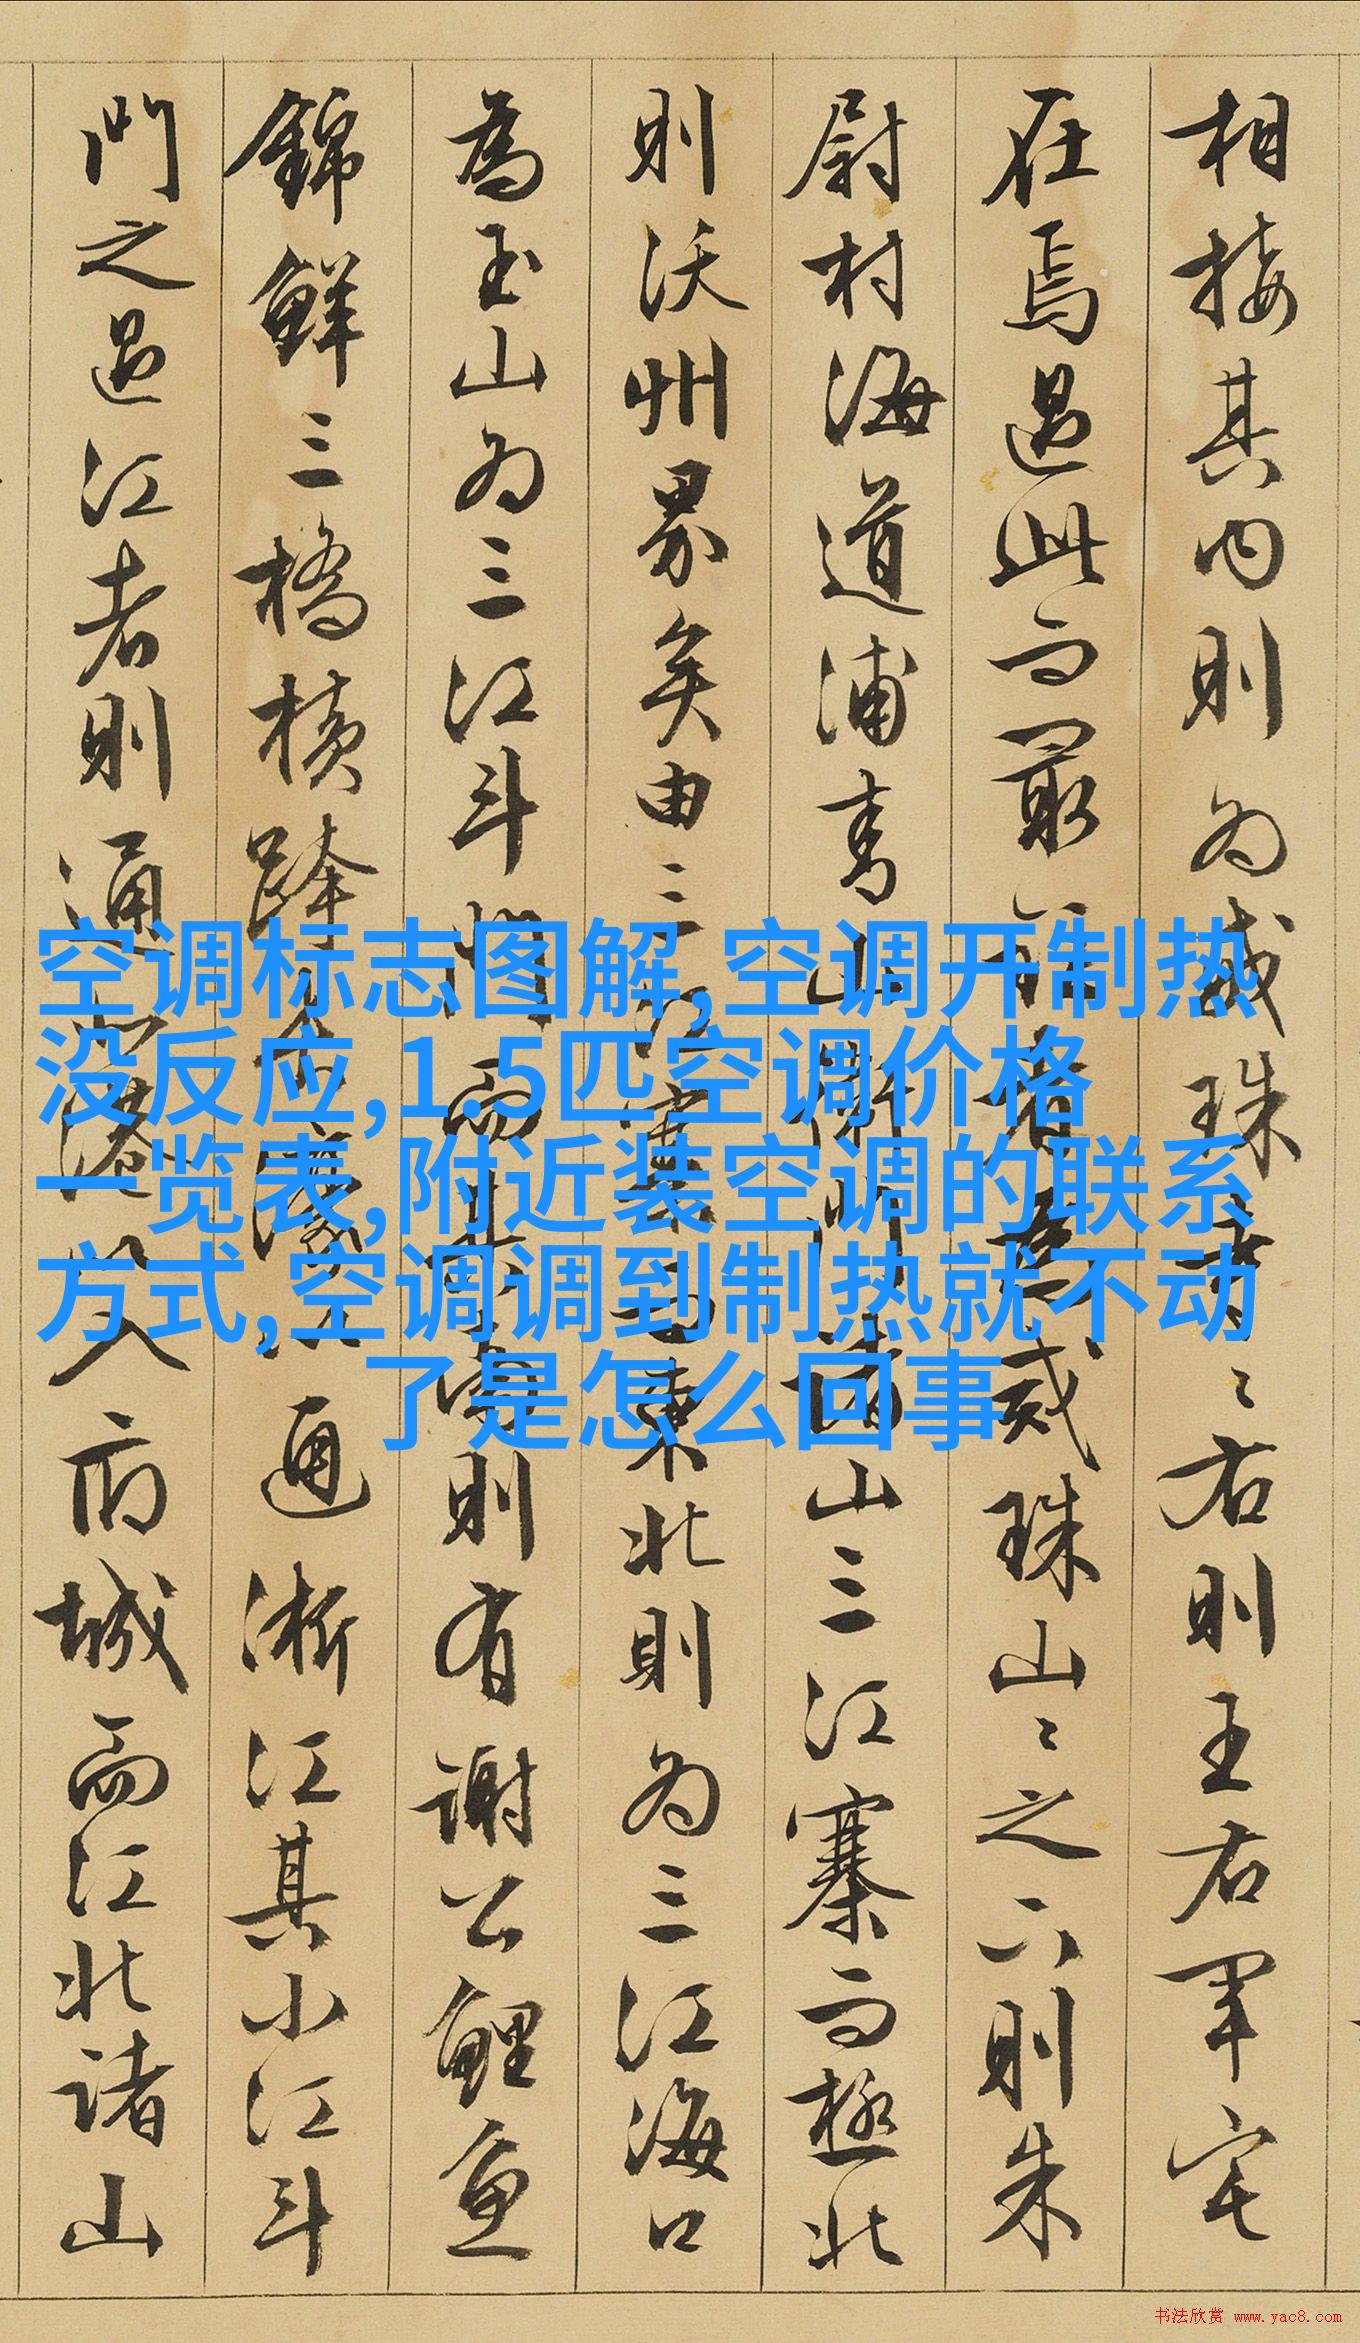 相接其内則为盛珠者〻右則王右軍宅
在焉過此而最
珠山〻之六則朱
尉村海道浦青山
諸山三江寨而極北
則沃州界矣由三江
東北則为三江海口
為玉山为三江斗
則有謝公鯉魚
錦鮮三橋横跨
通浙江其小江斗
門之過江者則通
入府城而江北諸山
空调标志图解,空调开制热
没反应,1.5匹空调价格
一览表,附近装空调的联系
方式,空调调到制热就不动
了是怎么回事
书法欣赏 www.yac8.com